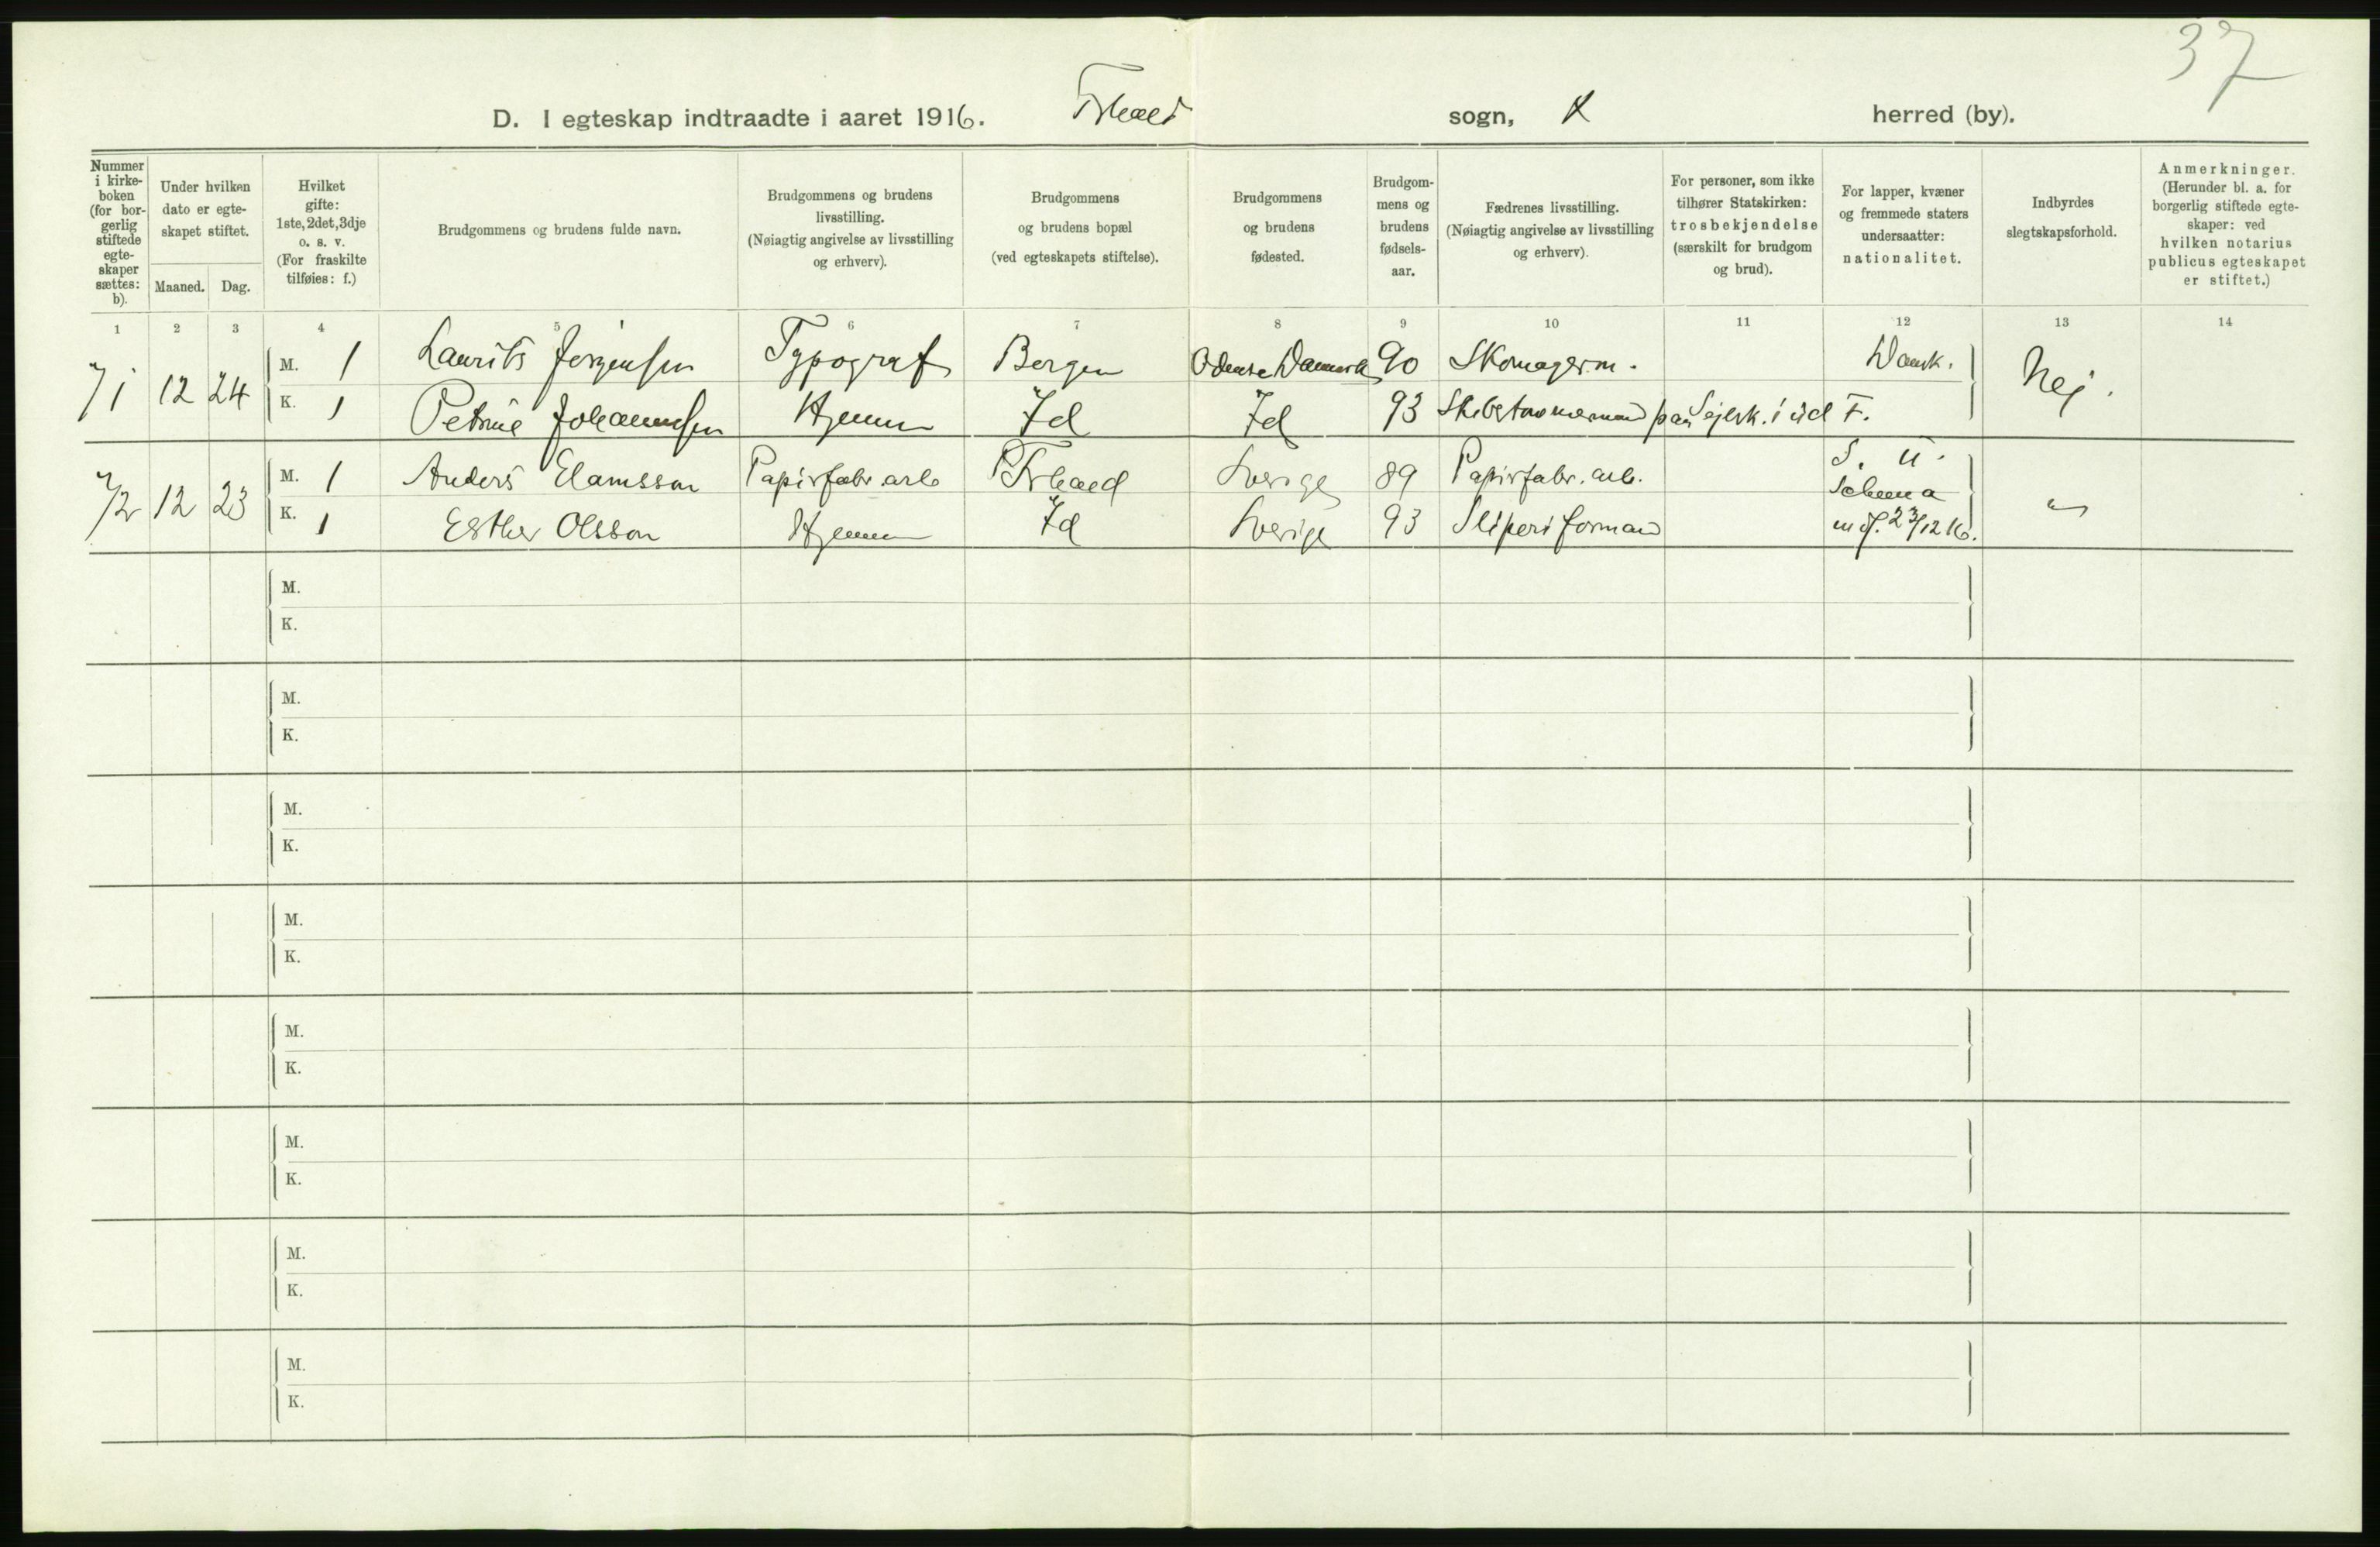 37
D. I egteskap indtraadte i aaret 1916. Frhald sogn, herred (by).
Nummer i kirke-boken (for bor-gerlig stiftede egte-skaper sættes: b).
Under hvilken dato er egte-skapet stiftet.
Maaned. Dag.
Hvilket gifte: 1ste, 2det, 3dje o. s. v. (For fraskilte tilføies: f.)
Brudgommens og brudens fulde navn.
Brudgommens og brudens livsstilling. (Nøiagtig angivelse av livsstilling og erhverv).
Brudgommens og brudens bopæl (ved egteskapets stiftelse).
Brudgommens og brudens fødested.
Brudgom-mens og brudens fødsels-aar.
Fædrenes livsstilling. (Nøiagtig angivelse av livsstilling og erhverv).
For personer, som ikke tilhører Statskirken: trosbekjendelse (særskilt for brudgom og brud).
For lapper, kvæner og fremmede staters undersaatter: nationalitet.
Indbyrdes slegtskapsforhold.
Anmerkninger. (Herunder bl. a. for borgerlig stiftede egte-skaper: ved hvilken notarius publicus egteskapet er stiftet.)
1 2 3 4 5 6 7 8 9 10 11 12 13 14
71 12 24 M. 1 Laurits Jørgensen Typograf Bergen Odense Danmark 90 Skomagerm. Dansk. Nej.
K. 1 Petrine Johannessen Hjemme Id Id 93 paa Sejlsk. i ud F.
72 12 23 M. 1 Anders Papirfabr. arb Frhald Sverige 89 Papirfabr. arb. S. U. "
K. 1 Esther Olsson Hjemme Id Sverige 93 Sliperiformand 23/12 16.
M.
K.
M.
K.
M.
K.
M.
K.
M.
K.
M.
K.
M.
K.
M.
K.